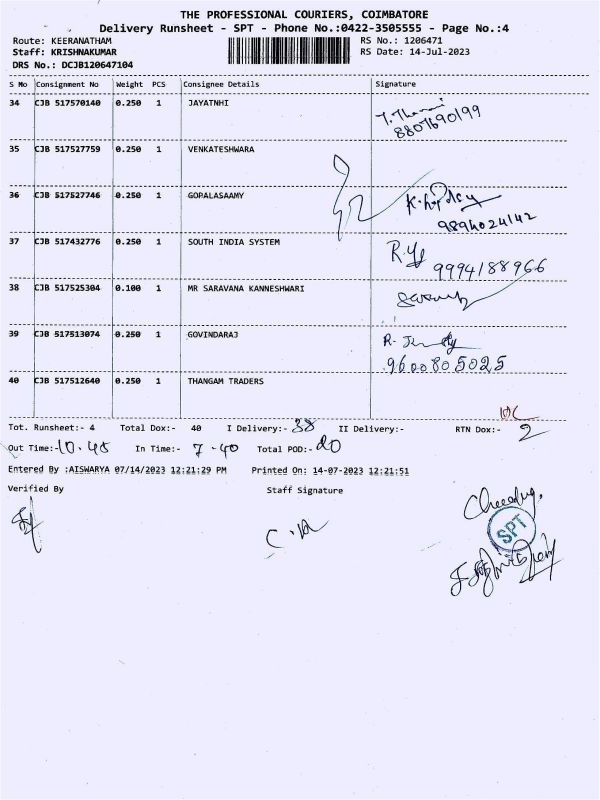 THE PROFESSIONAL COURIERS, COIMBATORE
Delivery Runsheet - SPT - Phone No.:0422-3505555 - Page No.:4
Route: KEERANATHAM RS No.: 1206471
Staff: KRISHNAKUMAR RS Date: 14-Jul-2023
DRS No.: DCJB120647104
S No Consignment No Weight PCS Consignee Details Signature
34 CJB 517570140 0.250 1 JAYATNHI
8807690199
35 CJB 517527759 0.250 1 VENKATESHWARA
36 CJB 517527746 0.250 1 GOPALASAAMY
9894024142
37 CJB 517432776 0.250 1 SOUTH INDIA SYSTEM
9994188966
38 CJB 517525304 0.100 1 MR SARAVANA KANNESHWARI
39 CJB 517513074 0.250 1 GOVINDARAJ
9600805025
40 CJB 517512640 0.250 1 THANGAM TRADERS
Tot. Runsheet:- 4 Total Dox:- 40 I Delivery:- 38 II Delivery:- RTN Dox:- 2
Out Time:- 10.45 In Time:- 7-40 Total POD:- 20
Entered By :AISWARYA 07/14/2023 12:21:29 PM Printed On: 14-07-2023 12:21:51
Verified By Staff Signature
SPT